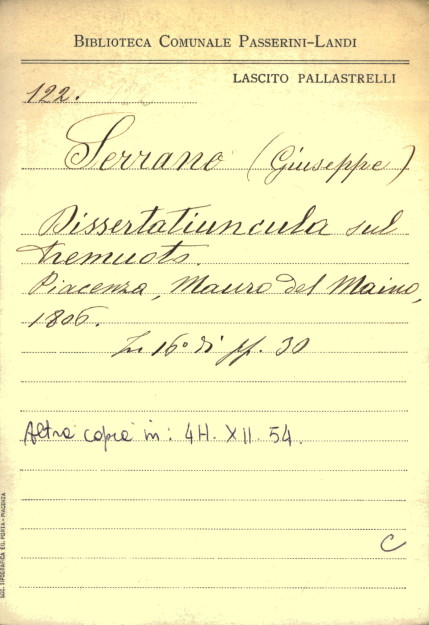 BIBLIOTECA COMUNALE PASSERINI-LANDI
LASCITO PALLASTRELLI
122.
Serrano (Giuseppe)
Dissertatiuncula sul
tremuoto.
Piacenza, Mauro del Maino,
1806.
In 16° di pp. 30
Altra copia in: 4H. XII. 54.
C
SOC. TIPOGRAFICA ED. PORTA - PIACENZA